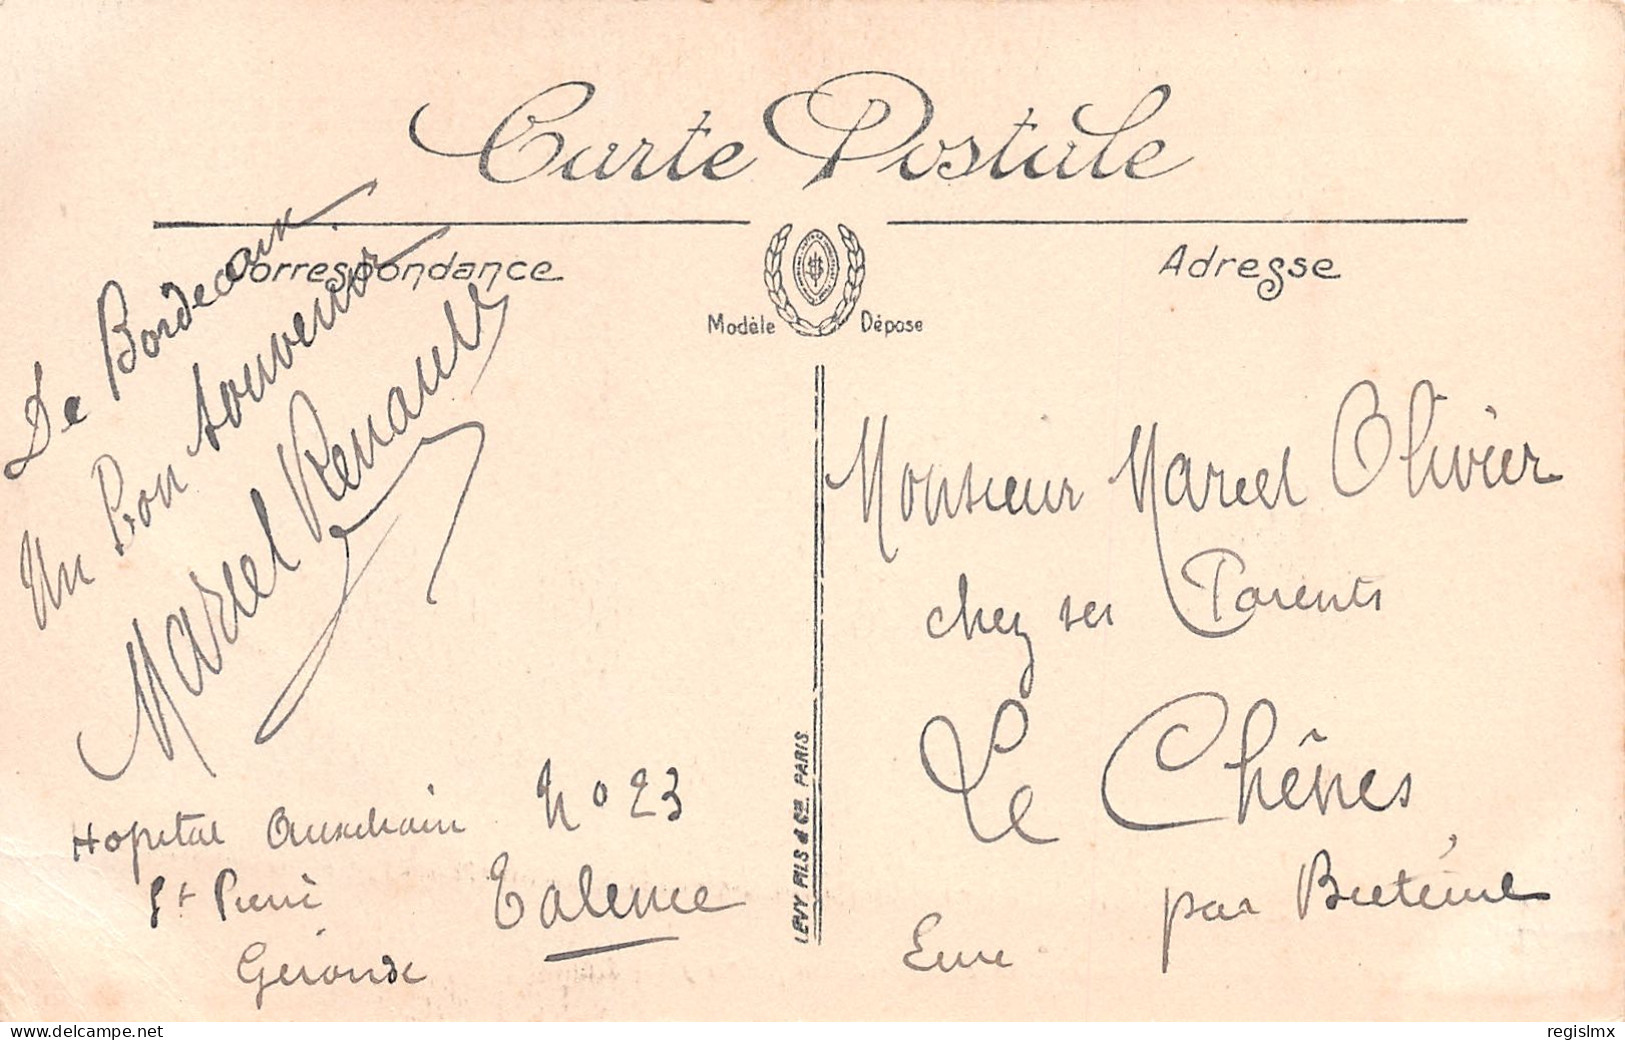 Carte Postale
Correspondance
Adresse
Modèle Déposé
De Bordeaux
Un Bon souvenir
Marcel Renault
Hopital Auxiliaire No 23
St Pierre Talence
Gironde
LEVY FILS & Cie. PARIS
Monsieur Marcel Olivier
chez ses Parents
Le Chênes
par Breteuil
Eure
delcampe.net
regislmx